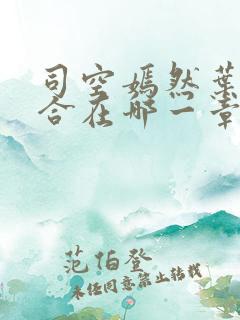 司空嫣然葉
合在哪一章
范伯登
未经同意禁止转载